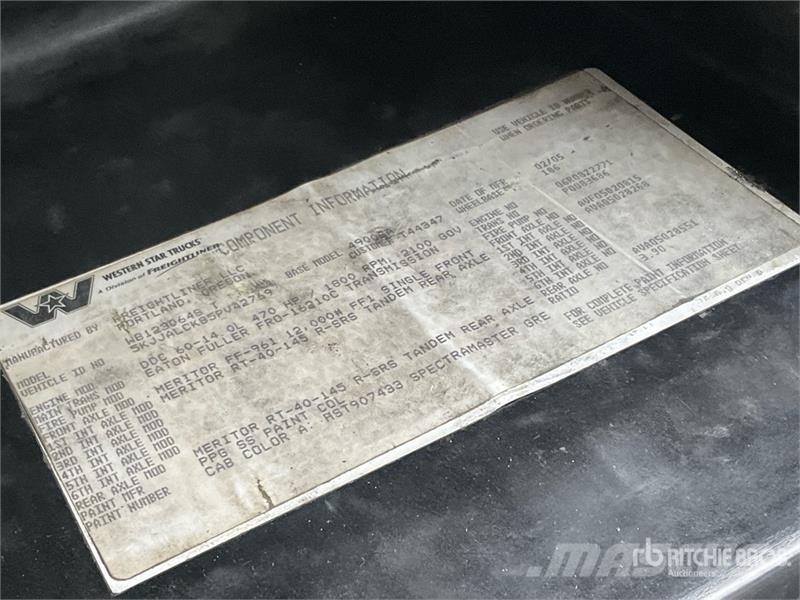 WESTERN STAR TRUCKS
A Division of FREIGHTLINER
COMPONENT INFORMATION
USE VEHICLE ID NUMBER
WHEN ORDERING PARTS
MANUFACTURED BY FREIGHTLINER LLC
PORTLAND, OREGON
DATE OF MFR 02/05
WHEELBASE 186
BASE MODEL
MODEL
VEHICLE ID NO 5KJJALCK85PV32769
ENGINE MOD DDC 60-14.0L 470 HP 1800 RPM, 2100 GOV
ENGINE NO 06R0822771
MAIN TRANS MOD EATON FULLER FRO-16210C TRANSMISSION
TRANS NO
FIRE PUMP MOD
FIRE PUMP NO
FRONT AXLE MOD MERITOR FF-961 12,000# FF1 SINGLE FRONT
1ST INT AXLE MOD MERITOR RT-40-145 R-SRS TANDEM REAR AXLE
1ST INT AXLE NO
2ND INT AXLE MOD
2ND INT AXLE NO
3RD INT AXLE MOD
3RD INT AXLE NO
4TH INT AXLE MOD
4TH INT AXLE NO
5TH INT AXLE MOD
5TH INT AXLE NO
6TH INT AXLE MOD
6TH INT AXLE NO
REAR AXLE MOD MERITOR RT-40-145 R-SRS TANDEM REAR AXLE
REAR AXLE NO AVA05028551
RATIO 3.90
PAINT MFR PPG SS PAINT COL
PAINT NUMBER CAB COLOR A: RST907433 SPECTRAMASTER GRE
FOR COMPLETE PAINT INFORMATION
SEE VEHICLE SPECIFICATION SHEET.
rb RITCHIE BROS.
Auctioneers